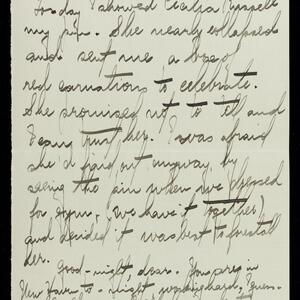 To-day I showed Cecilia Russell
my pin. She nearly collapsed
and sent me a box of
red carnations to celebrate.
She promised not to tell and
I can trust her. I was afraid
she'd find out anyway, by
seeing the pin when we dressed
for gym, (we have it together)
and decided it was best to forestall
her.
Good-night, dear. You're in
New Haven to-night